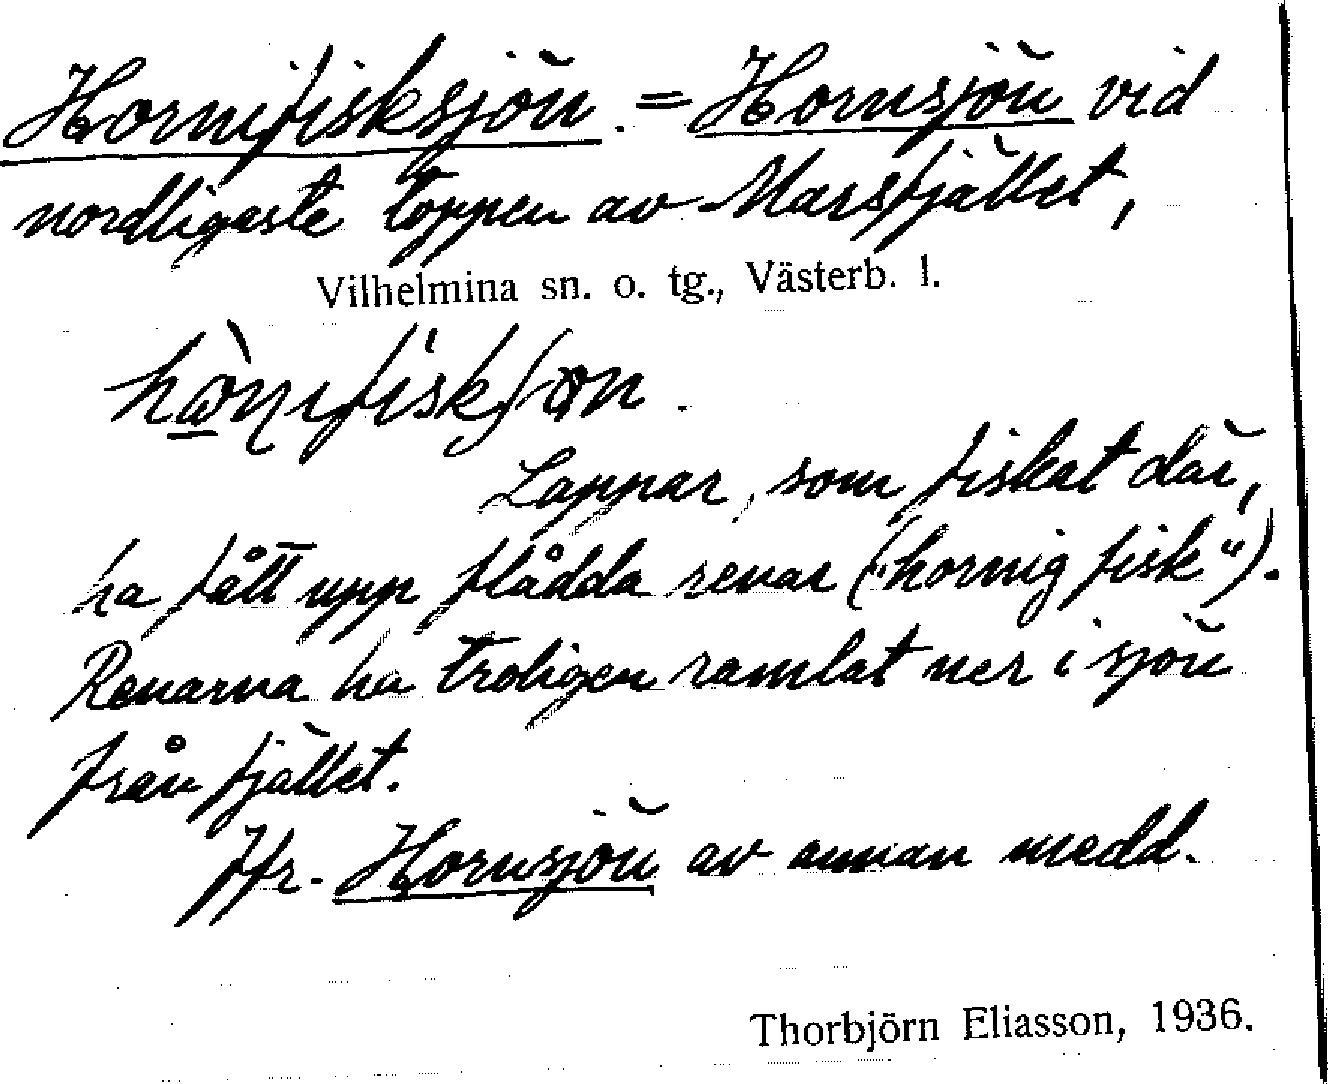 Hornifisksjön. = Hornsjön vid
nordligaste toppen av Marsfjället,
Vilhelmina sn. o. tg., Västerb. l.
Lappar, som fiskat där,
ha fått upp flådda renar („hornig fisk“).
Renarna ha troligen ramlat ner i sjön
från fjället.
Jfr. Hornsjön av annan medd.
Thorbjörn Eliasson, 1936.